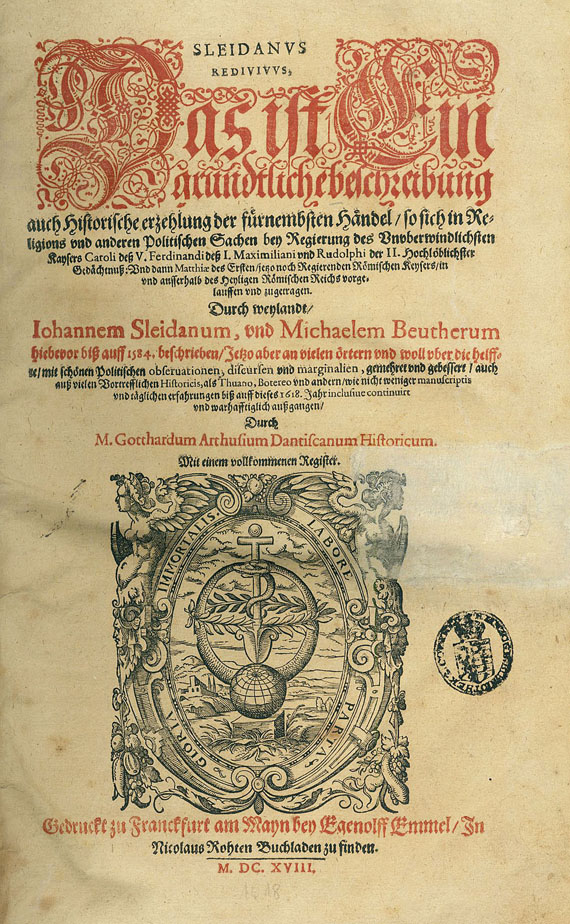 SLEIDANVS
REDIVIVVS,
Das ist Ein
gründtliche beschreibung
auch Historische erzehlung der fürnembsten Händel / so sich in Re-
ligions vnd anderen Politischen Sachen bey Regierung des Vnvberwindlichsten
Kaysers Caroli deß V. Ferdinandi deß I. Maximiliani vnd Rudolphi der II. Hochlöblichster
Gedächtnuß: Vnd dann Matthiæ des Ersten / jetzo noch Regierenden Römischen Keysers / in
vnd ausserhalb des Heyligen Römischen Reichs vorge-
lauffen vnd zugetragen.
Durch weylandt /
Iohannem Sleidanum, vnd Michaelem Beutherum
hiebevor biß auff 1584. beschrieben / Jetzo aber an vielen örtern vnd woll vber die helff-
te / mit schönen Politischen obseruationen, discursen vnd marginalien, gemehret vnd gebessert / auch
auß vielen Vortrefflichen Historicis, als Thuano, Botereo vnd andern / wie nicht weniger manuscriptis
vnd täglichen erfahrungen biß auff dieses 1618. Jahr inclusiue continuirt
vnd warhafftiglich außgangen /
Durch
M. Gotthardum Arthusium Dantiscanum Historicum.
Mit einem vollkommenen Register.
IMMORTALIS. LABORE
GLORIA PARTA
Gedruckt zu Franckfurt am Mayn bey Egenolff Emmel / In
Nicolaus Rohten Buchladen zu finden.
M. DC. XVIII.
1618.